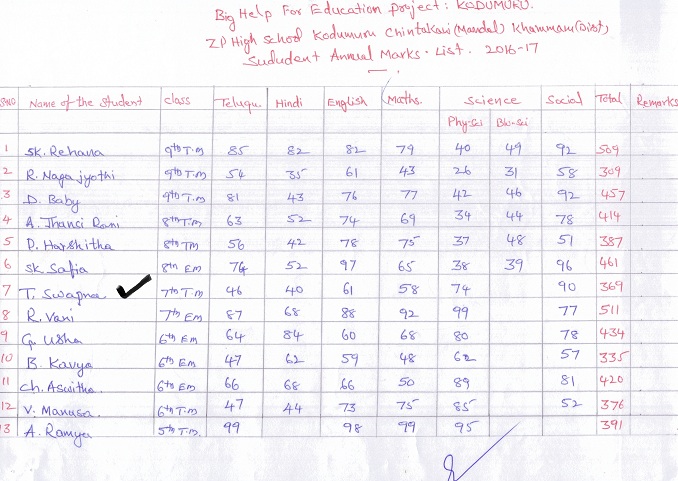 Big Help For Education project: KODUMURU.
ZP High School Kodumuru Chintakani (Mandal) Khammam (Dist),
Sududent Annual Marks. List. 2016-17
S.NO Name of the Student class Telugu. Hindi English Maths. Science Social Total Remarks
Phy.sci Bio-sci
1 SK. Rehana 9th T.M 85 82 82 79 40 49 92 509
2 R. Naga jyothi 9th T.M 54 35 61 43 26 31 58 309
3 D. Baby 9th T.M 81 43 76 77 42 46 92 457
4 A. Jhanci Rani 8th T.M 63 52 74 69 34 44 78 414
5 P. Harshitha 8th TM 56 42 78 75 37 48 51 387
6 SK Safia 8th EM 74 52 97 65 38 39 96 461
7 T. Swapna 7th T.M 46 40 61 58 74 90 369
8 R. Vani 7th EM 87 68 88 92 99 77 511
9 G. Usha 6th EM 64 84 60 68 80 78 434
10 B. Kavya 6th EM 47 62 59 48 62 57 335
11 Ch. Aswitha. 6th EM 66 68 66 50 89 81 420
12 V. Manusa. 6th T.M 47 44 73 75 85 52 376
13 A. Ramya 5th T.M. 99 98 99 95 391